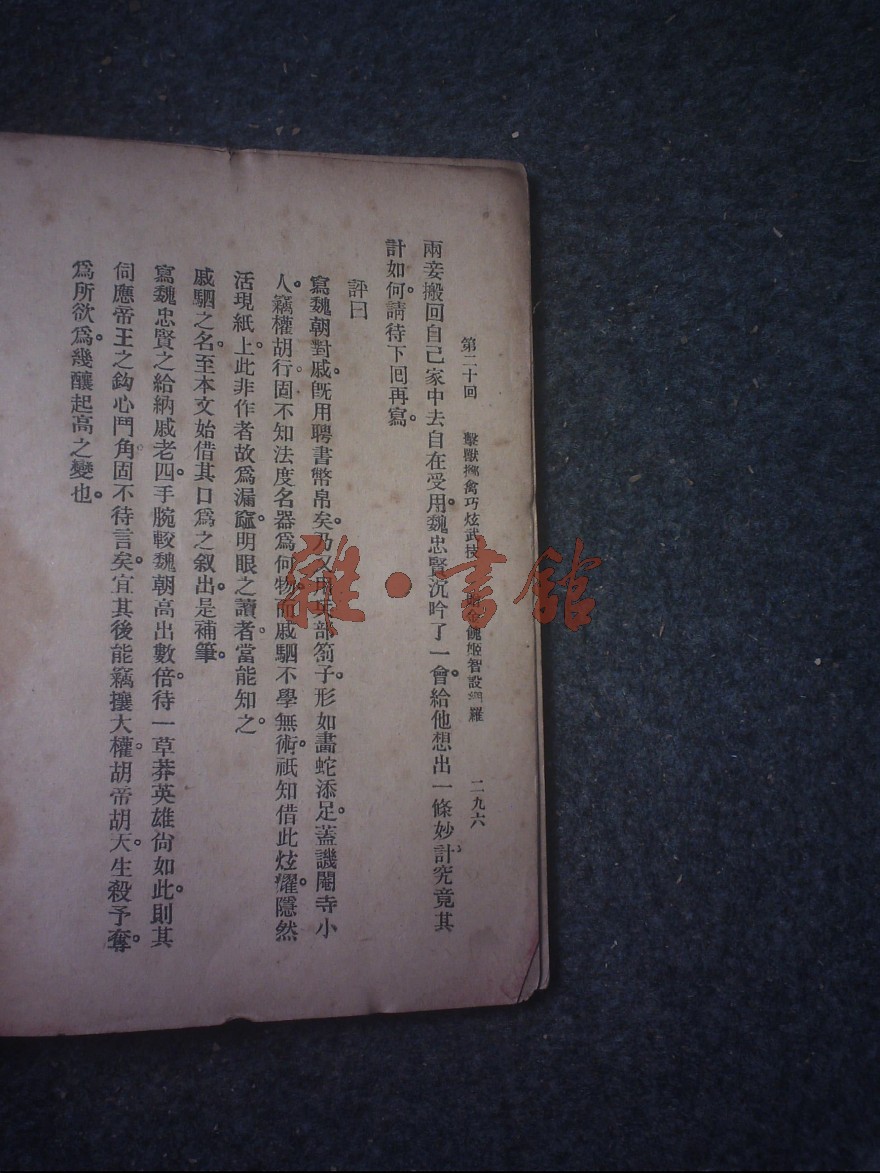 第二十回 擊獸擒禽巧炫武技 姬智設網羅 二九六
兩妾搬回自己家中去自在受用。魏忠賢沉吟了一會給他想出一條妙計究竟其
計如何。請待下回再寫。
評曰
寫魏朝對戚。旣用聘書幣帛矣。乃又用兵部劄子。形如畵蛇添足。蓋譏閹寺小
人。竊權胡行。固不知法度名器爲何物。而戚駟不學無術。祇知借此炫耀。隱然
活現紙上。此非作者故爲漏竇。明眼之讀者。當能知之。
戚駟之名。至本文始借其口爲之叙出。是補筆。
寫魏忠賢之給納戚老四。手腕較魏朝高出數倍。待一草莽英雄尙如此。則其
伺應帝王之鈎心鬥角。固不待言矣。宜其後能竊攘大權。胡帝胡天。生殺予奪。
爲所欲爲。幾釀起高之變也。
雜·書館